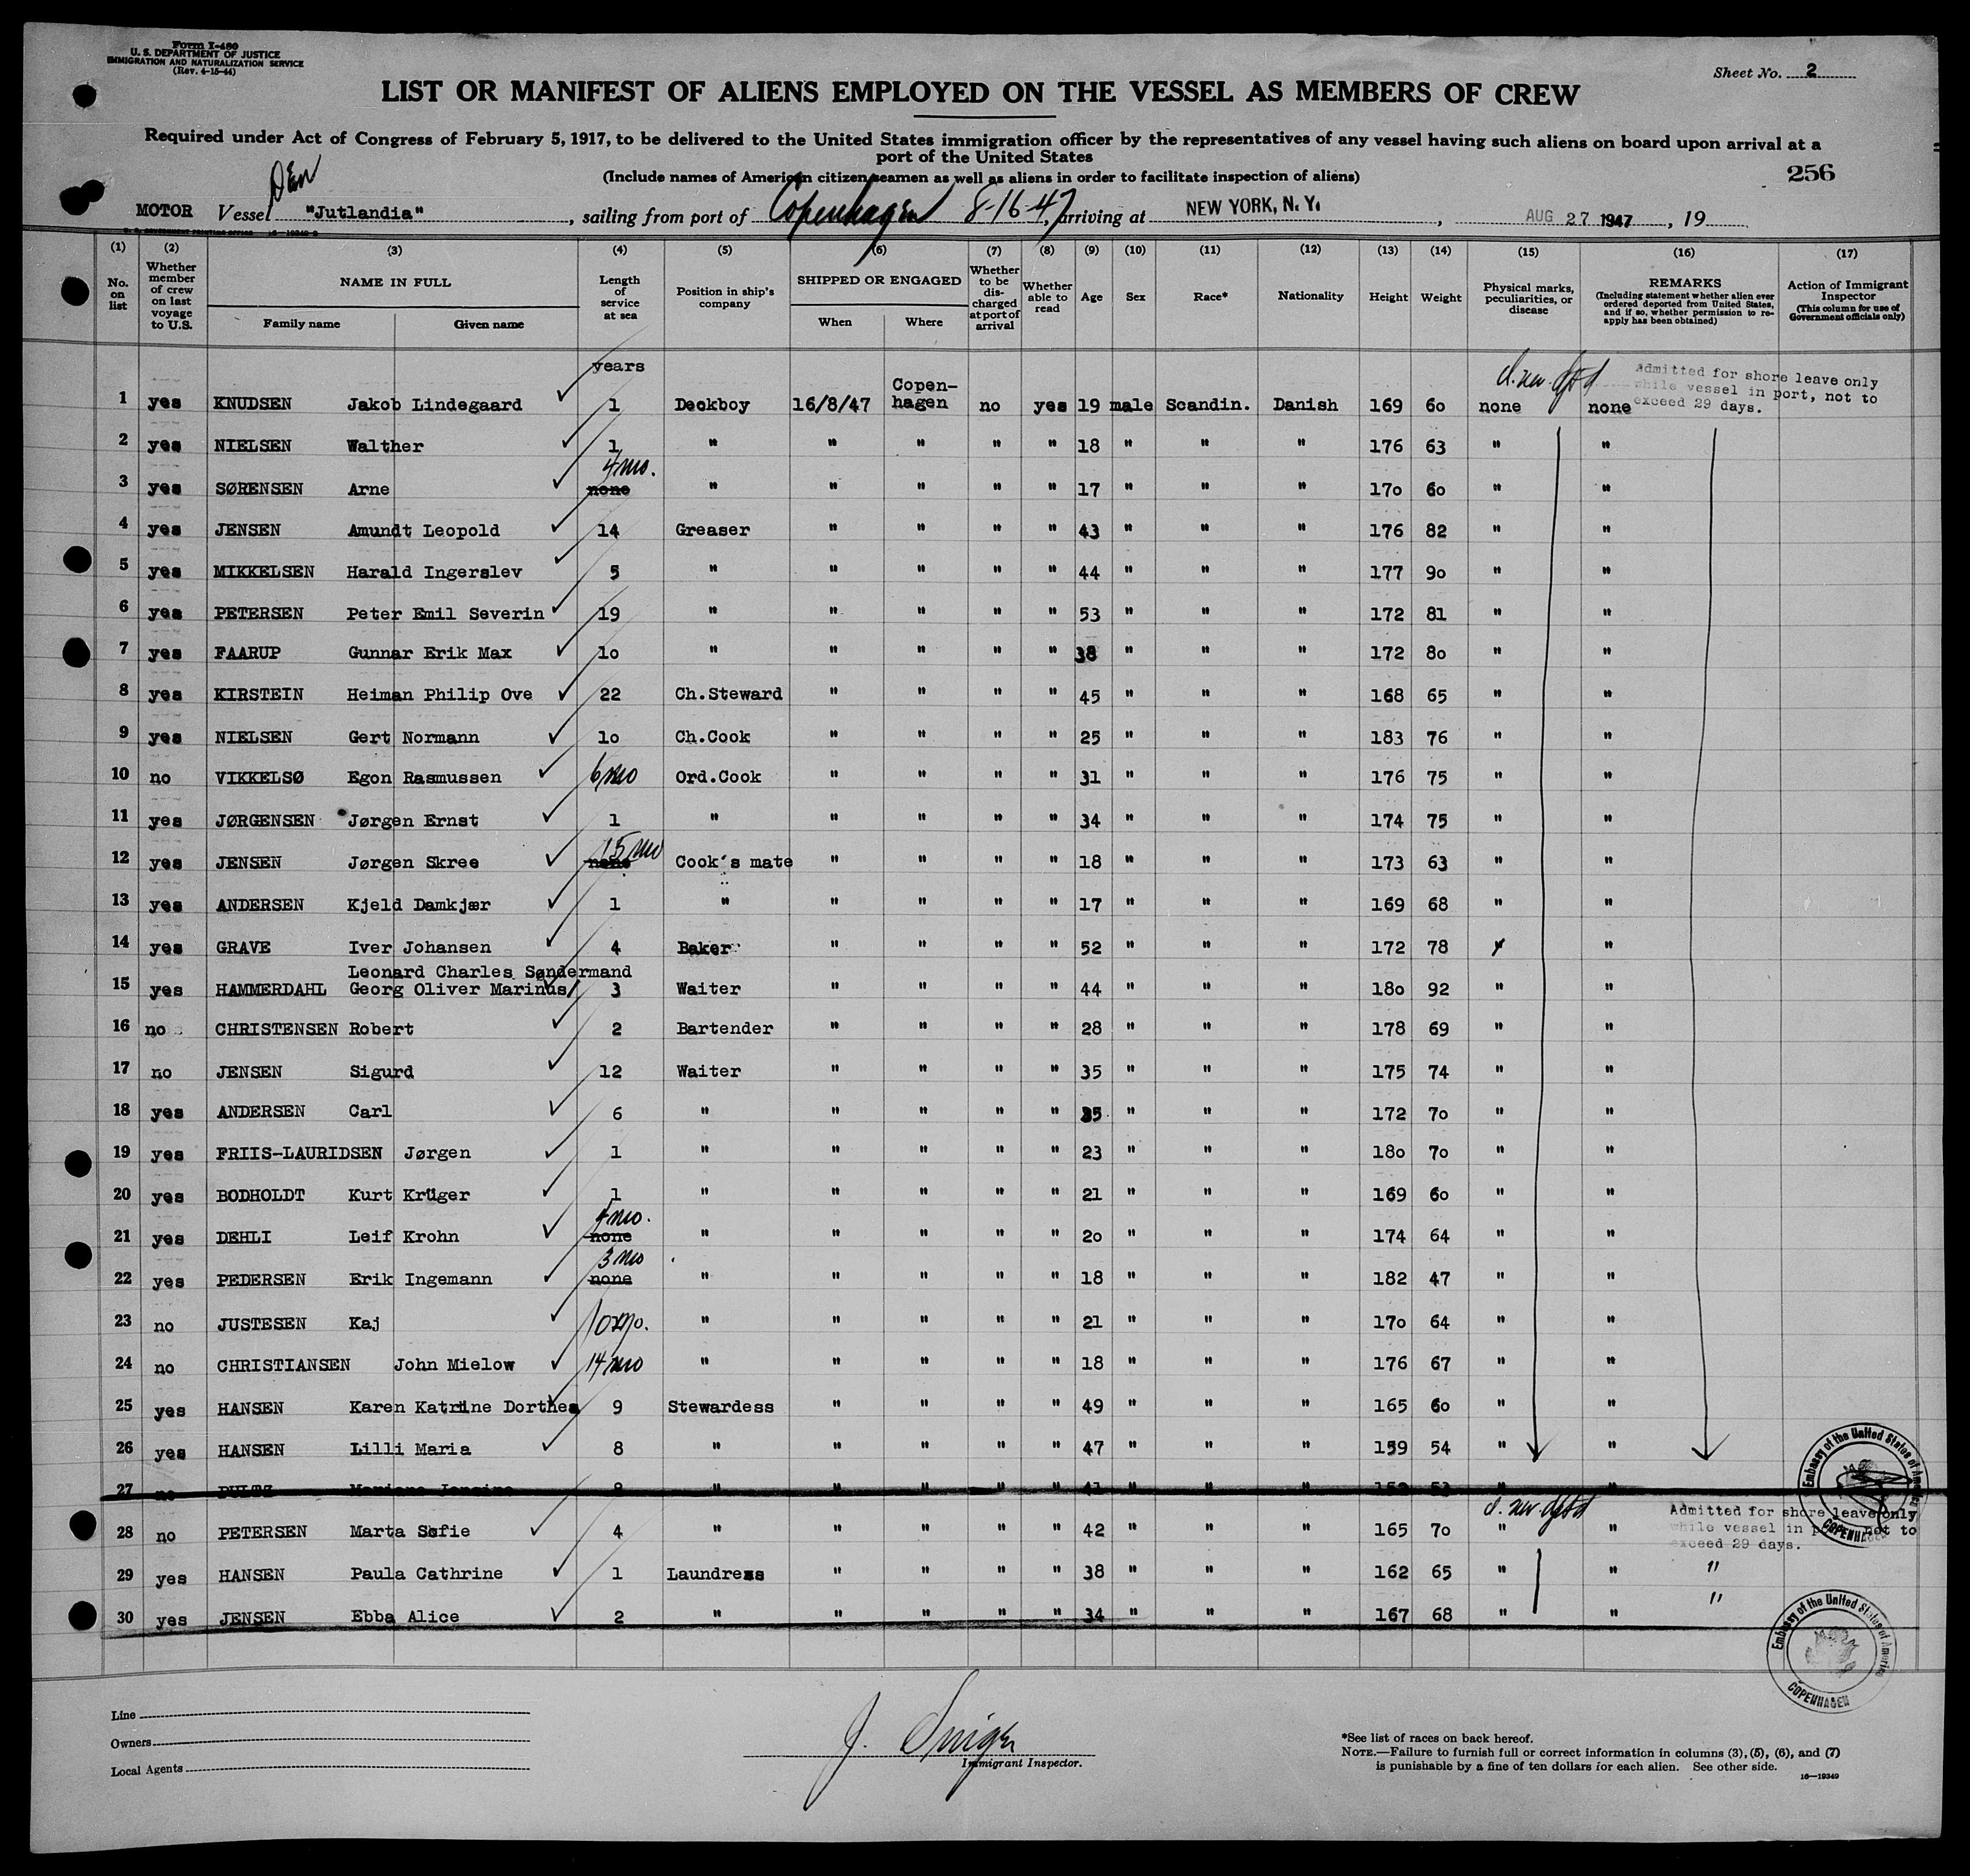 Form I-480
U. S. DEPARTMENT OF JUSTICE
IMMIGRATION AND NATURALIZATION SERVICE
(Rev. 4-15-44)
Sheet No. 2
LIST OR MANIFEST OF ALIENS EMPLOYED ON THE VESSEL AS MEMBERS OF CREW
Required under Act of Congress of February 5, 1917, to be delivered to the United States immigration officer by the representatives of any vessel having such aliens on board upon arrival at a
port of the United States
(Include names of American citizen seamen as well as aliens in order to facilitate inspection of aliens)
256
DEN
MOTOR Vessel "Jutlandia", sailing from port of Copenhagen 8-16-47, arriving at NEW YORK, N. Y., AUG 27 1947, 19
(1) (2) (3) (4) (5) (6) (7) (8) (9) (10) (11) (12) (13) (14) (15) (16) (17)
No. on list
Whether member of crew on last voyage to U.S.
NAME IN FULL
Family name Given name
Length of service at sea
Position in ship's company
SHIPPED OR ENGAGED
When Where
Whether to be discharged at port of arrival
Whether able to read
Age
Sex
Race*
Nationality
Height
Weight
Physical marks, peculiarities, or disease
REMARKS
(Including statement whether alien ever ordered deported from United States, and if so, whether permission to re-apply has been obtained)
Action of Immigrant Inspector
(This column for use of Government officials only)
years
Admitted for shore leave only
while vessel in port, not to
exceed 29 days.
1 yes KNUDSEN Jakob Lindegaard 1 Deckboy 16/8/47 Copen-hagen no yes 19 male Scandin. Danish 169 60 none none
2 yes NIELSEN Walther 1 " " " " " 18 " " " 176 63 " "
3 yes SØRENSEN Arne none 4 mo. " " " " " 17 " " " 170 60 " "
4 yes JENSEN Amundt Leopold 14 Greaser " " " " 43 " " " 176 82 " "
5 yes MIKKELSEN Harald Ingerslev 5 " " " " " 44 " " " 177 90 " "
6 yes PETERSEN Peter Emil Severin 19 " " " " " 53 " " " 172 81 " "
7 yes FAARUP Gunnar Erik Max 10 " " " " " 38 " " " 172 80 " "
8 yes KIRSTEIN Heiman Philip Ove 22 Ch.Steward " " " " 45 " " " 168 65 " "
9 yes NIELSEN Gert Normann 10 Ch.Cook " " " " 25 " " " 183 76 " "
10 no VIKKELSØ Egon Rasmussen 6 mo Ord.Cook " " " " 31 " " " 176 75 " "
11 yes JØRGENSEN Jørgen Ernst 1 " " " " " 34 " " " 174 75 " "
12 yes JENSEN Jørgen Skree none 15 mo Cook's mate " " " " 18 " " " 173 63 " "
13 yes ANDERSEN Kjeld Damkjær 1 " " " " " 17 " " " 169 68 " "
14 yes GRAVE Iver Johansen 4 Baker " " " " 52 " " " 172 78 " "
Leonard Charles Søndermand
15 yes HAMMERDAHL Georg Oliver Marinus/ 3 Waiter " " " " 44 " " " 180 92 " "
16 no CHRISTENSEN Robert 2 Bartender " " " " 28 " " " 178 69 " "
17 no JENSEN Sigurd 12 Waiter " " " " 35 " " " 175 74 " "
18 yes ANDERSEN Carl 6 " " " " " 35 " " " 172 70 " "
19 yes FRIIS-LAURIDSEN Jørgen 1 " " " " " 23 " " " 180 70 " "
20 yes BODHOLDT Kurt Krüger 1 " " " " " 21 " " " 169 60 " "
21 yes DEHLI Leif Krohn none 4 mo. " " " " " 20 " " " 174 64 " "
22 yes PEDERSEN Erik Ingemann none 3 mo " " " " " 18 " " " 182 47 " "
23 no JUSTESEN Kaj 10 mo. " " " " " 21 " " " 170 64 " "
24 no CHRISTIANSEN John Mielow 14 mo " " " " " 18 " " " 176 67 " "
25 yes HANSEN Karen Katrine Dorthea 9 Stewardess " " " " 49 " " " 165 60 " "
26 yes HANSEN Lilli Maria 8 " " " " " 47 " " " 159 54 " "
27 no
28 no PETERSEN Marta Sofie 4 " " " " " 42 " " " 165 70 " "
Admitted for shore leave only
while vessel in port, not to
exceed 29 days.
29 yes HANSEN Paula Cathrine 1 Laundress " " " " 38 " " " 162 65 " " "
30 yes JENSEN Ebba Alice 2 " " " " " 34 " " " 167 68 " " "
Embassy of the United States of America
COPENHAGEN
Embassy of the United States of America
COPENHAGEN
Line
Owners
Local Agents
Immigrant Inspector.
*See list of races on back hereof.
NOTE.—Failure to furnish full or correct information in columns (3), (5), (6), and (7)
is punishable by a fine of ten dollars for each alien. See other side.
16—19349